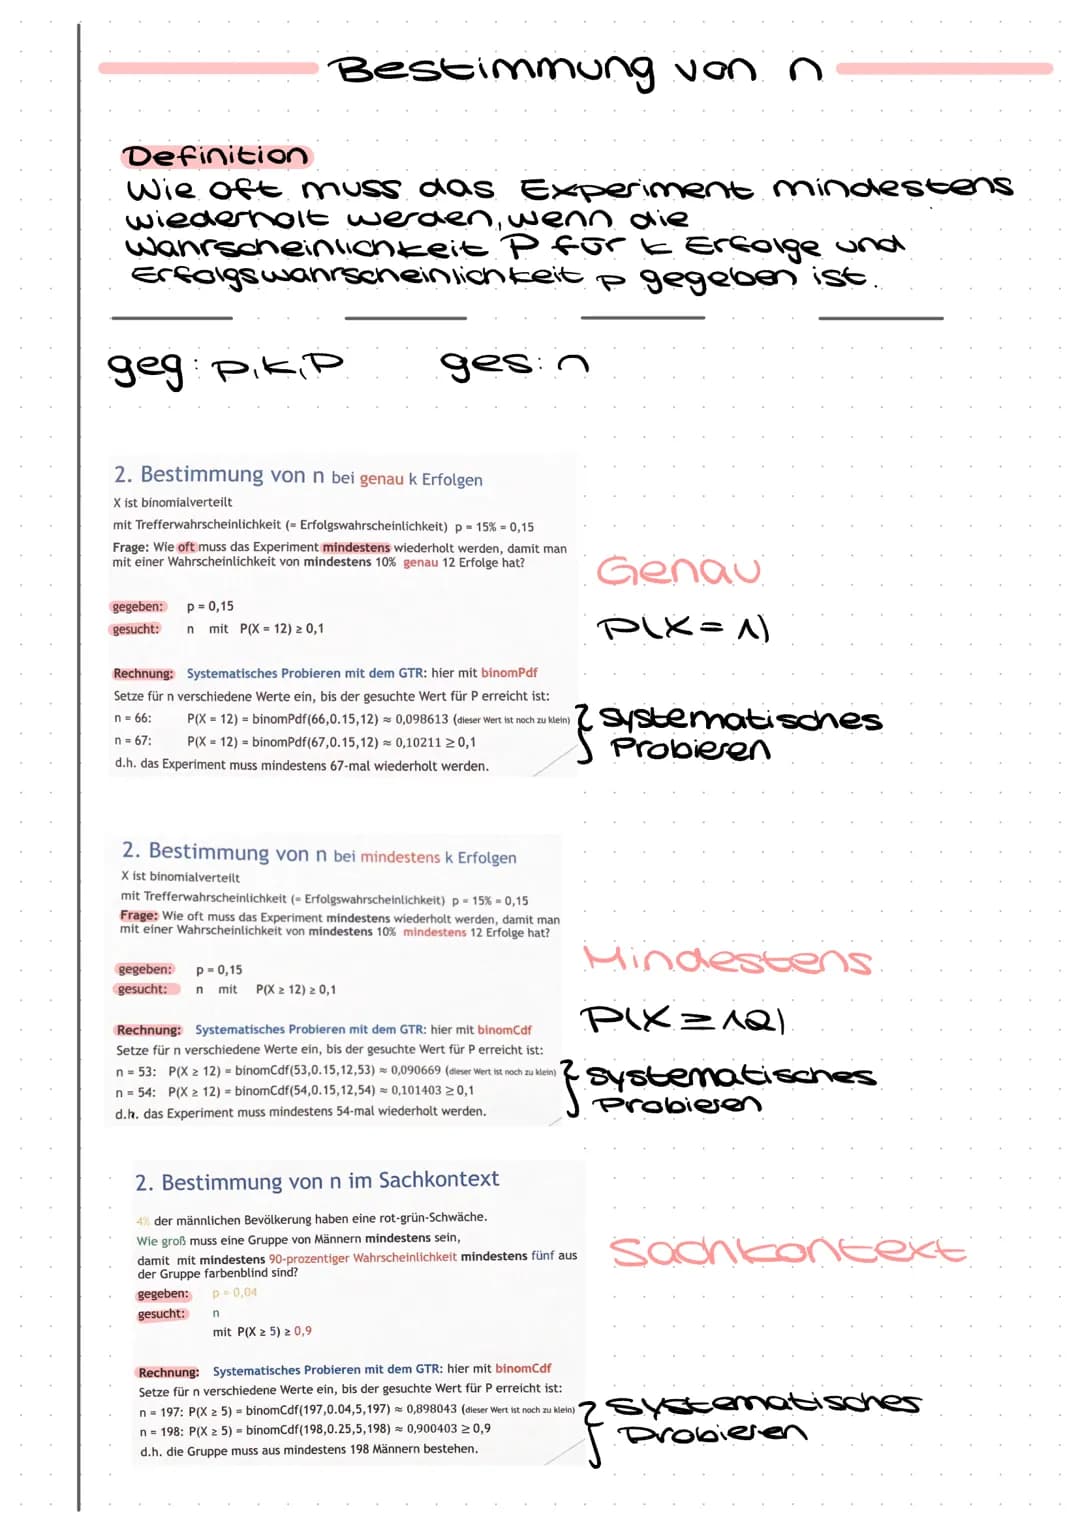 Bestimmung von n
Definition
Wie oft muss das Experiment mindestens
wiederholt werden, wenn die
Wahrscheinlichkeit P für k Erfolge und
Erfolgswahrscheinlichkeit p gegeben ist.
geg: p,k,P ges: n
2. Bestimmung von n bei genau k Erfolgen
X ist binomialverteilt
mit Trefferwahrscheinlichkeit (= Erfolgswahrscheinlichkeit) p = 15% = 0,15
Frage: Wie oft muss das Experiment mindestens wiederholt werden, damit man
mit einer Wahrscheinlichkeit von mindestens 10% genau 12 Erfolge hat?
Genau
gegeben: p = 0,15
gesucht: n mit P(X = 12) ≥ 0,1
P(X = 1)
Rechnung: Systematisches Probieren mit dem GTR: hier mit binomPdf
Setze für n verschiedene Werte ein, bis der gesuchte Wert für P erreicht ist:
n = 66: P(X = 12) = binomPdf(66,0.15,12) ≈ 0,098613 (dieser Wert ist noch zu klein)
n = 67: P(X = 12) = binomPdf(67,0.15,12) ≈ 0,10211 ≥ 0,1
d.h. das Experiment muss mindestens 67-mal wiederholt werden.
} systematisches
Probieren
2. Bestimmung von n bei mindestens k Erfolgen
X ist binomialverteilt
mit Trefferwahrscheinlichkeit (= Erfolgswahrscheinlichkeit) p = 15% = 0,15
Frage: Wie oft muss das Experiment mindestens wiederholt werden, damit man
mit einer Wahrscheinlichkeit von mindestens 10% mindestens 12 Erfolge hat?
Mindestens
gegeben: p = 0,15
gesucht: n mit P(X ≥ 12) ≥ 0,1
P(X ≥ 12)
Rechnung: Systematisches Probieren mit dem GTR: hier mit binomCdf
Setze für n verschiedene Werte ein, bis der gesuchte Wert für P erreicht ist:
n = 53: P(X ≥ 12) = binomCdf(53,0.15,12,53) ≈ 0,090669 (dieser Wert ist noch zu klein)
n = 54: P(X ≥ 12) = binomCdf(54,0.15,12,54) ≈ 0,101403 ≥ 0,1
d.h. das Experiment muss mindestens 54-mal wiederholt werden.
} systematisches
Probieren
2. Bestimmung von n im Sachkontext
4% der männlichen Bevölkerung haben eine rot-grün-Schwäche.
Wie groß muss eine Gruppe von Männern mindestens sein,
damit mit mindestens 90-prozentiger Wahrscheinlichkeit mindestens fünf aus
der Gruppe farbenblind sind?
Sachkontext
gegeben: p = 0,04
gesucht: n
mit P(X ≥ 5) ≥ 0,9
Rechnung: Systematisches Probieren mit dem GTR: hier mit binomCdf
Setze für n verschiedene Werte ein, bis der gesuchte Wert für P erreicht ist:
n = 197: P(X ≥ 5) = binomCdf(197,0.04,5,197) ≈ 0,898043 (dieser Wert ist noch zu klein)
n = 198: P(X ≥ 5) = binomCdf(198,0.25,5,198) ≈ 0,900403 ≥ 0,9
d.h. die Gruppe muss aus mindestens 198 Männern bestehen.
} systematisches
Probieren